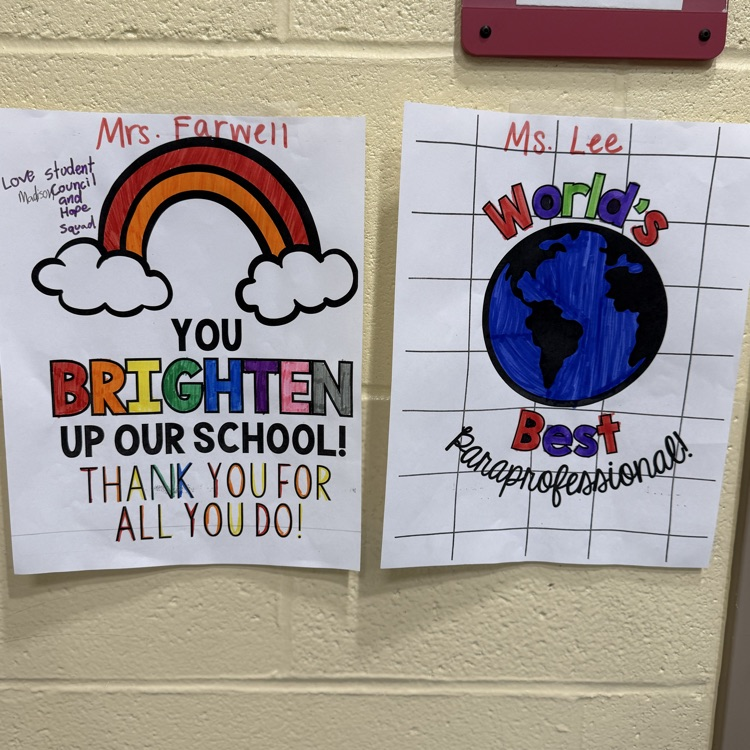 Mrs. Farwell
Love Student
Madison Council
and
Hope
Squad
YOU
BRIGHTEN
UP OUR SCHOOL!
THANK YOU FOR
ALL YOU DO!
Ms. Lee
World's
Best
paraprofessional!